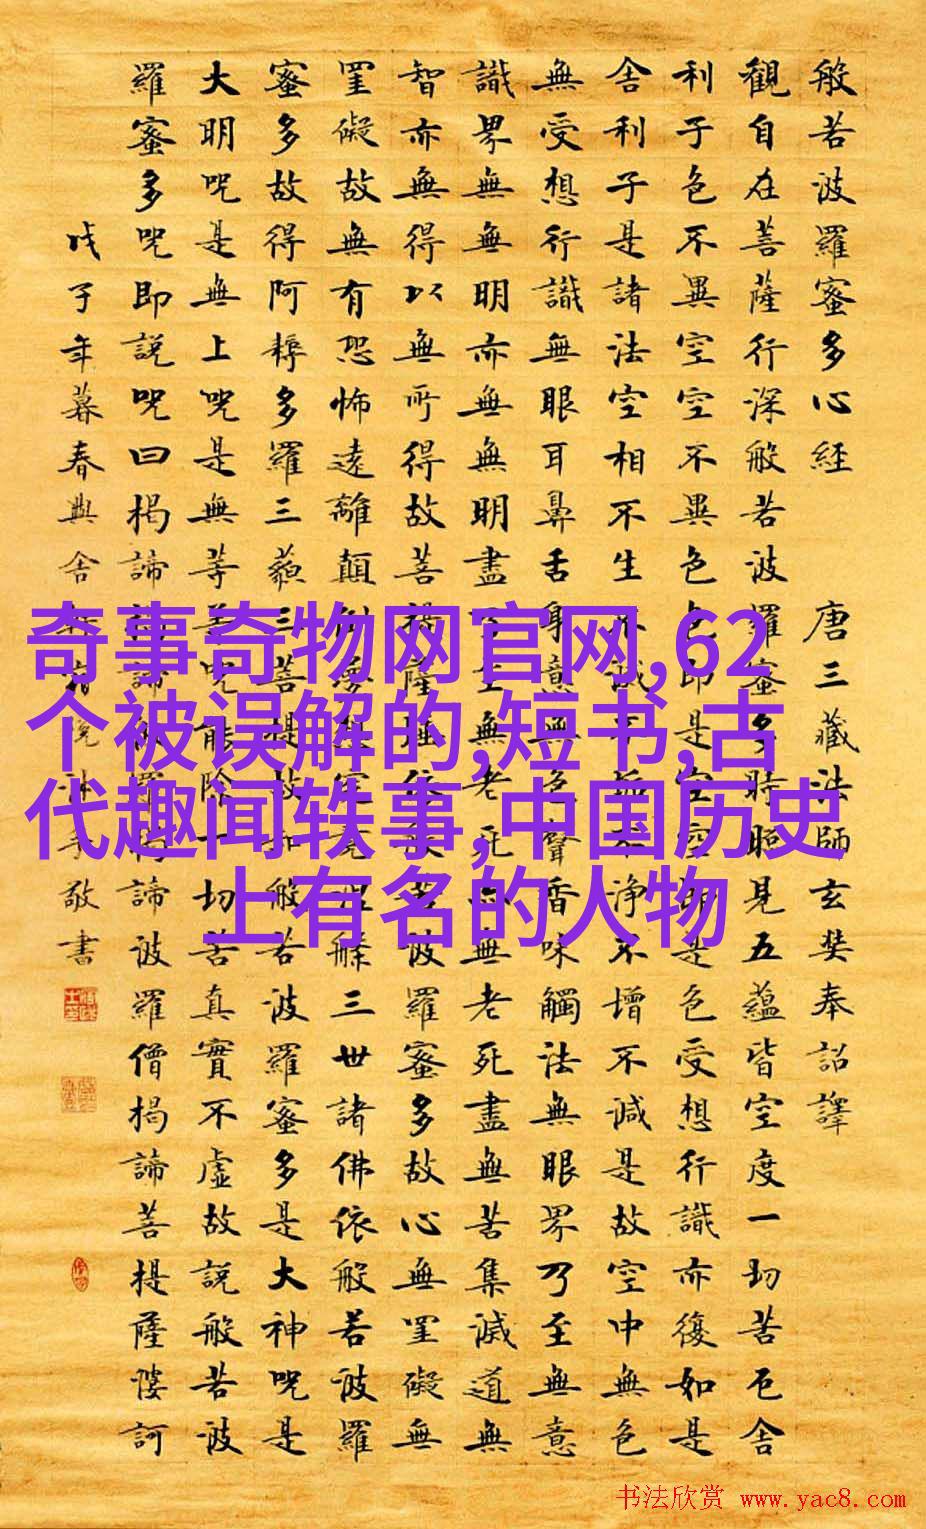 般若波羅蜜多心經 唐三藏法師玄奘奉詔譯
觀自在菩薩行深般若波羅蜜多時照見五蘊皆空度一切苦厄舍
利子色不異空空不異色色即是空空即是色受想行識亦復如是
舍利子是諸法空相不生不滅不垢不淨不增不減是故空中無色
無受想行識無眼耳鼻舌身意無色聲香味觸法無眼界乃至無意
識界無無明亦無無明盡乃至無老死亦無老死盡無苦集滅道無
智亦無得以無所得故菩提薩埵依般若波羅蜜多故心無罣礙無
罣礙故無有恐怖遠離顛倒夢想究竟涅槃三世諸佛依般若波羅
蜜多故得阿耨多羅三藐三菩提故知般若波羅蜜多是大神咒是
大明咒是無上咒是無等等咒能除一切苦真實不虛故說般若波
羅蜜多咒即說咒曰揭諦揭諦波羅揭諦波羅僧揭諦菩提薩婆訶
戊子年暮春興舍敬書
奇事奇物网官网,62
个被误解的,短书,古
代趣闻轶事,中国历史
上有名的人物
书法欣赏 www.yac8.com